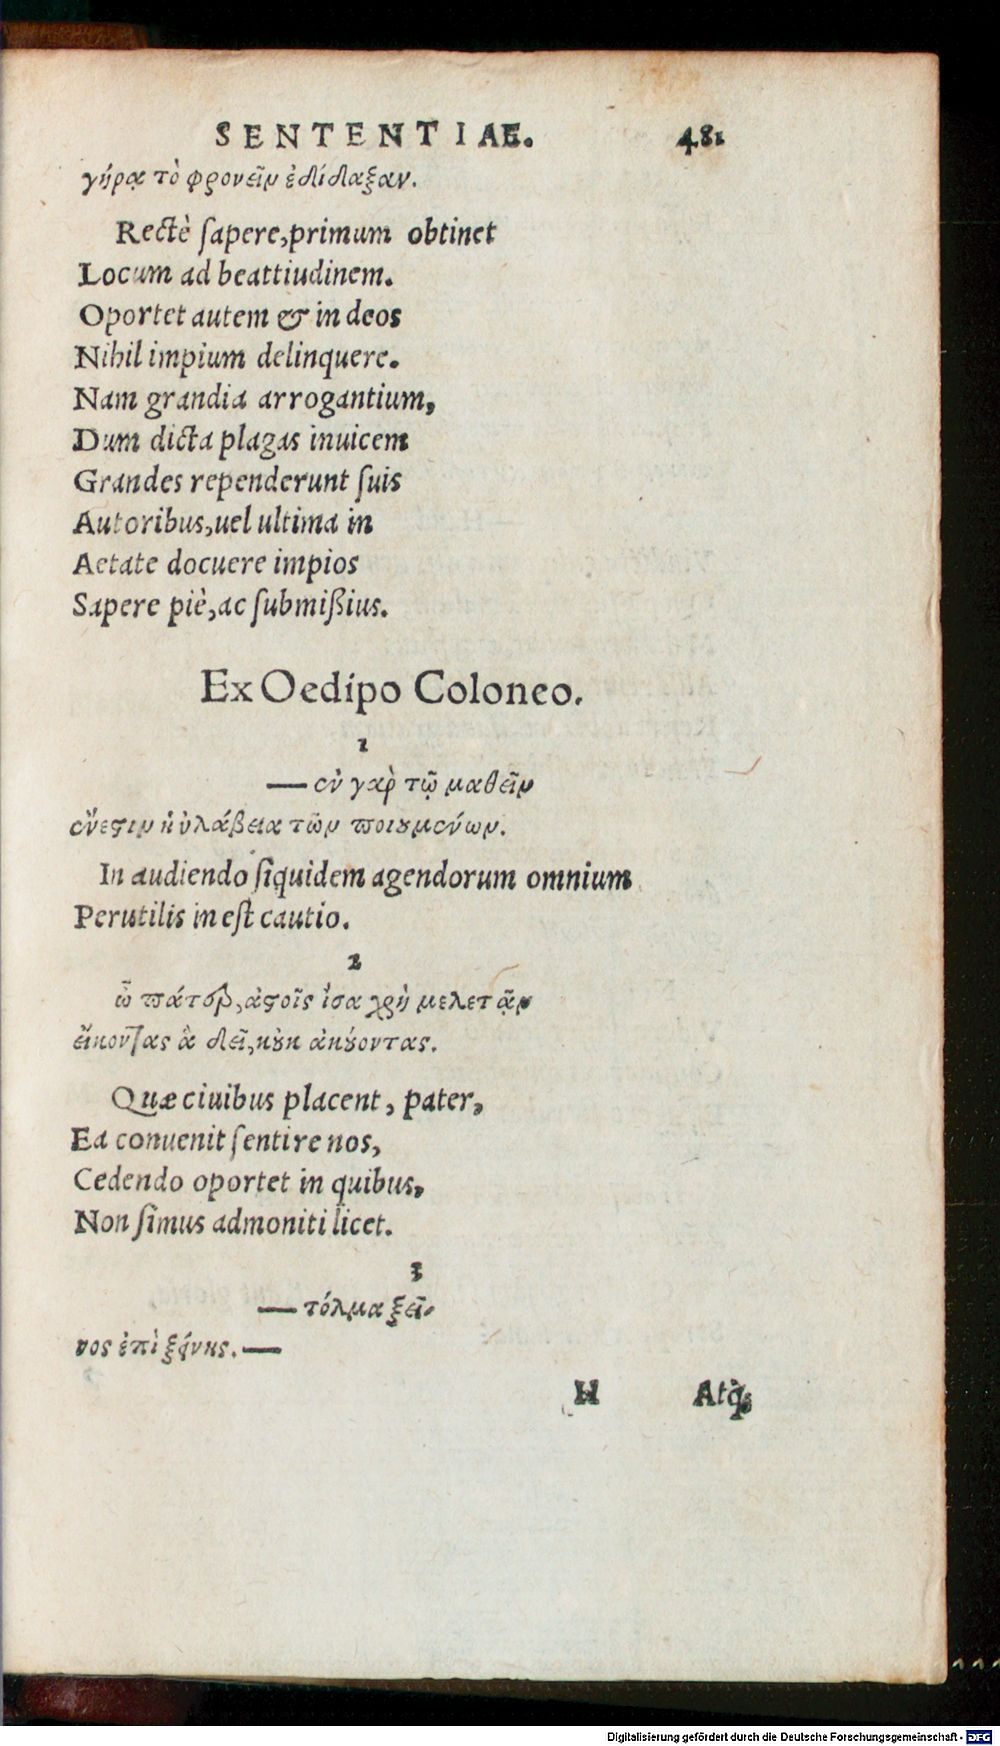 SENTENTIAE. 481
γήρᾳ τὸ φρονεῖν ἐδίδαξαν.
Rectè ſapere, primum obtinet
Locum ad beattiudinem.
Oportet autem & in deos
Nihil impium delinquere.
Nam grandia arrogantium,
Dum dicta plagas inuicem
Grandes rependerunt ſuis
Autoribus, uel ultima in
Aetate docuere impios
Sapere piè, ac ſubmißius.
Ex Oedipo Coloneo.
1
— ἐν γαρ̀ τῷ μαθεῖν
ἔνεστιν ηὐλάβεια τῶν ποιουμένων.
In audiendo ſiquidem agendorum omnium
Perutilis in eſt cautio.
2
ὦ πάτερ, ἀστοῖς ἴσα χρὴ μελετᾷν
εἴκοντας ἃ δεῖ, κοὐκ ἀκούοντας.
Quæ ciuibus placent, pater,
Ea conuenit ſentire nos,
Cedendo oportet in quibus,
Non ſimus admoniti licet.
3
— τόλμα ξεῖ-
νος ἐπὶ ξένης. —
H Atq́;
Digitalisierung gefördert durch die Deutsche Forschungsgemeinschaft - DFG